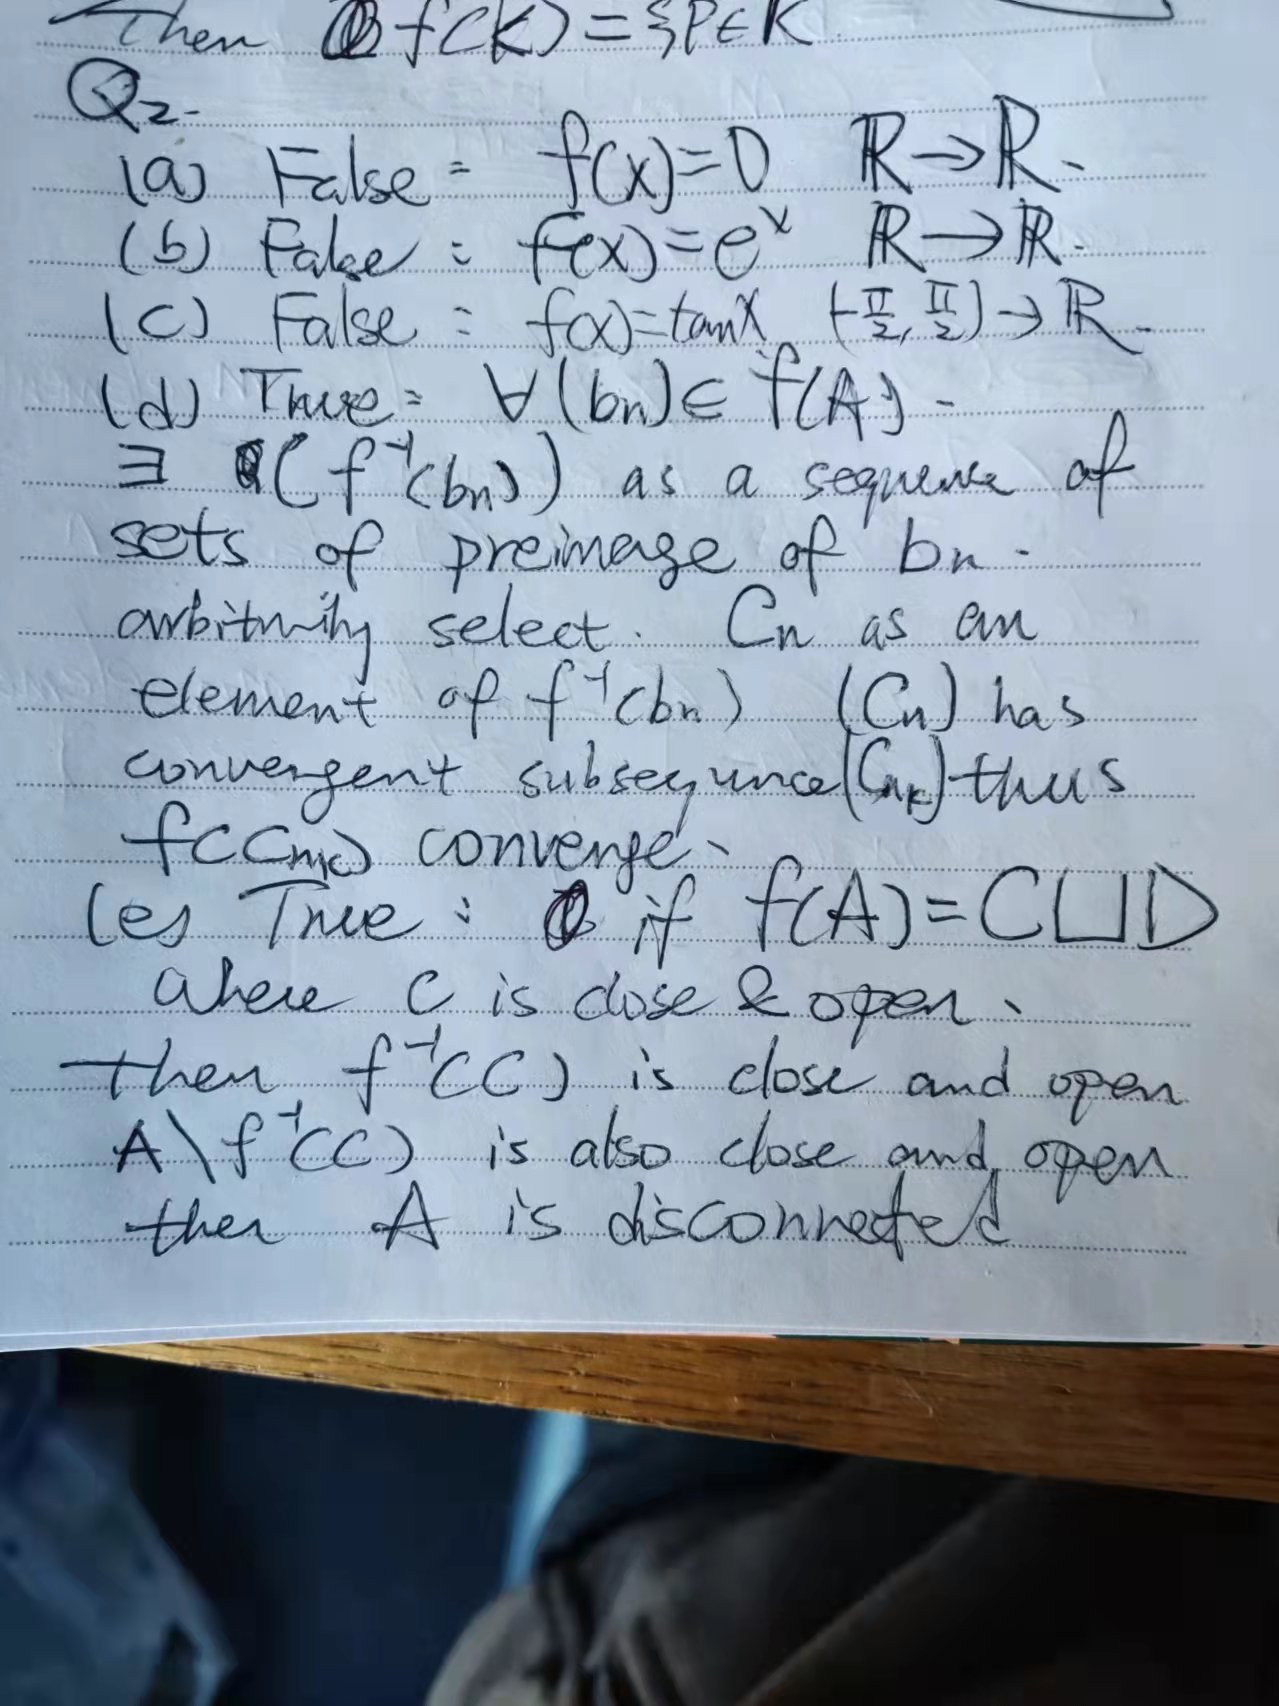 Then f(K) = {P∈K
Q2.
(a) False: f(x)=0 ℝ→ℝ.
(b) False: f(x)=e^x ℝ→ℝ.
(c) False: f(x)=tanx (-π/2, π/2)→ℝ.
(d) True: ∀(bn)∈ f(A).
∃ (f⁻¹(bn)) as a sequence of
sets of preimage of bn.
select. Cn as an
element of f⁻¹(bn) (Cn) has
convergent subsequnce(Cnk) thus
f(Cnk) converge.
(e) True: if f(A)=C⊔D
where C is close & open.
then f⁻¹(C) is close and open
A\f⁻¹(C) is also close and open
then A is disconnected